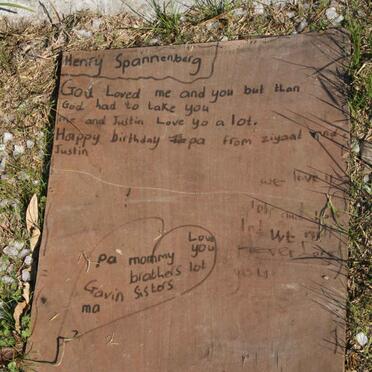 Henry Spannenberg
God Loved me and you but than
God had to take you
me and Justin Love yo a lot.
Happy birthday pa from ziyaat and
Justin
we love
we
you
pa mommy Love
you
brothers lot
Gavin Sisters
ma